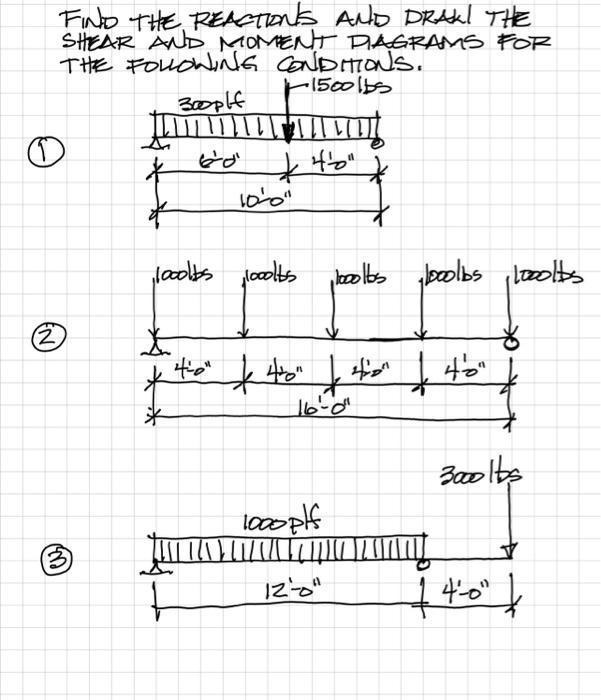 FIND THE REACTIONS AND DRAW THE
SHEAR AND MOMENT DIAGRAMS FOR
THE FOLLOWING CONDITIONS.
1500 lbs
300 plf
①
6'-0" 4'-0"
10'-0"
1000 lbs 1000 lbs 1000 lbs 1000 lbs 1000 lbs
②
4'-0" 4'-0" 4'-0" 4'-0"
16'-0"
3000 lbs
1000 plf
③
12'-0" 4'-0"